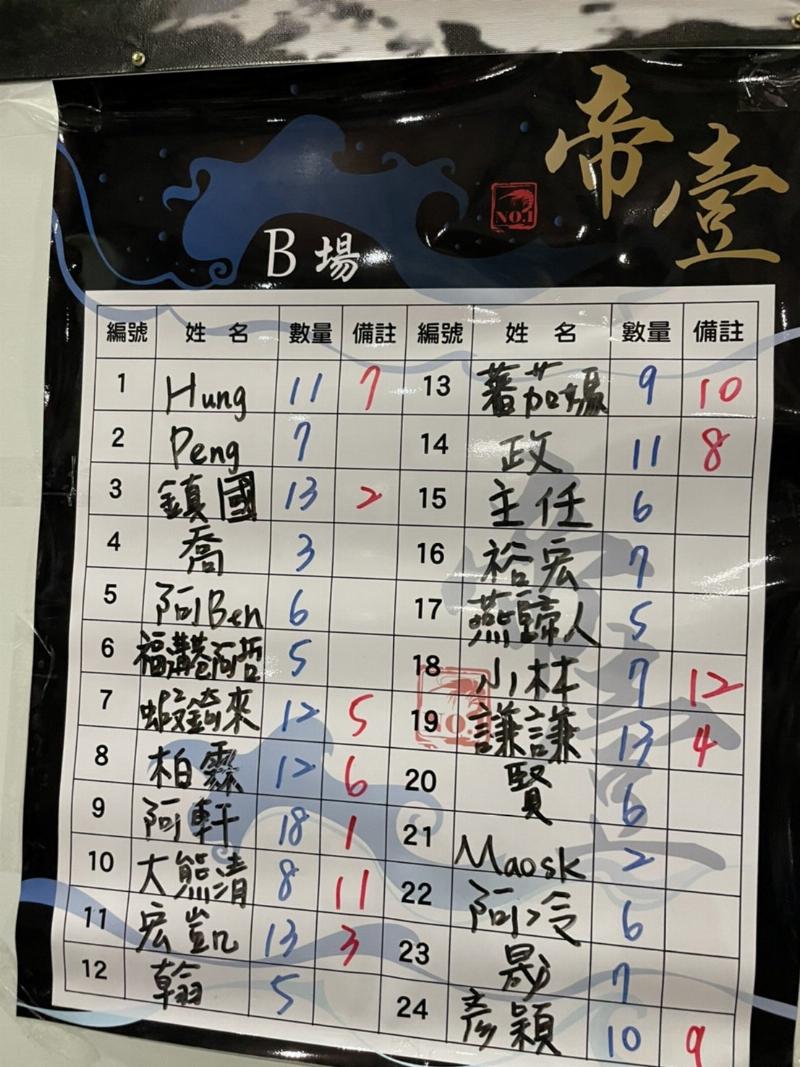 帝壹
NO.1
B 場
編號 姓 名 數量 備註 編號 姓 名 數量 備註
1 Hung 11 7 13 蕃茄媽 9 10
2 Peng 7 14 政 11 8
3 鎮國 13 2 15 主任 6
4 喬 3 16 裕宏 7
5 阿Ben 6 17 燕歸人 5
6 福隆巷阿哲 5 18 小林 7 12
7 蝦鎗來 12 5 19 謙謙 13 4
8 柏霖 12 6 20 賢 6
9 阿軒 18 1 21 Maosk 2
10 大熊清 8 11 22 阿冷 6
11 宏凱 13 3 23 晟 7
12 翰 5 24 彥穎 10 9